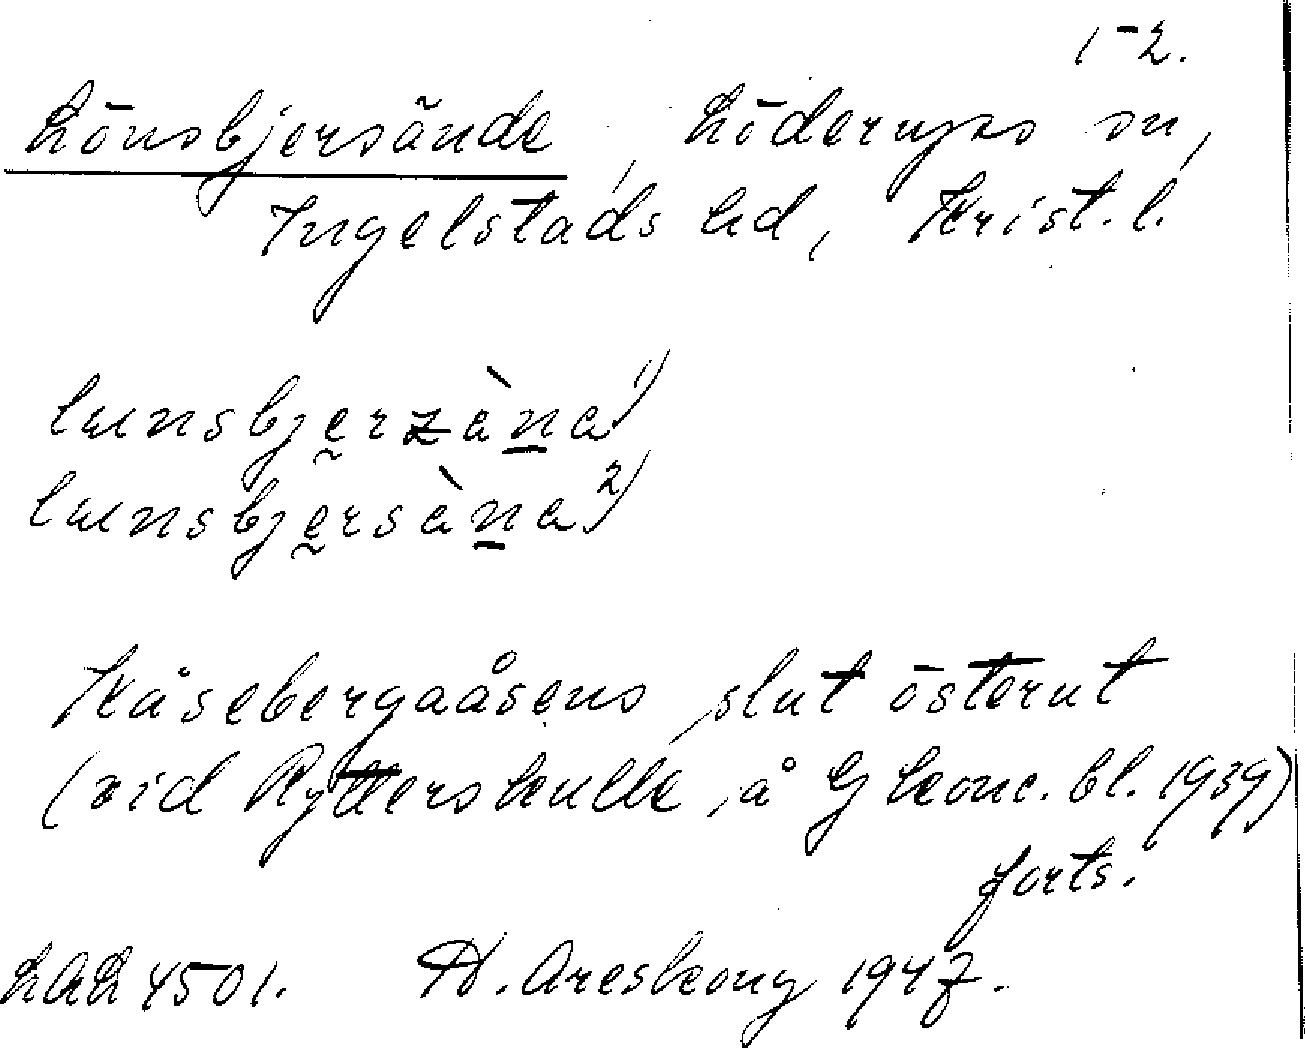 1-2.
Lönsbjersände, Löderups sn,
Ingelstads hd, Krist. l.
lunsbjerzàna 1)
lunsbjersàna 2)
Kåsebergaåsens slut österut
(vid Rytterskulle, å G konc. bl. 1939)
forts.
LAL 4501. H. Areskoug 1947.